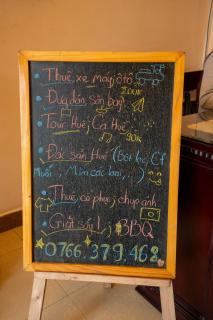 Thuê xe máy, ôtô
Đưa đón sân bay
200K
Tour Huế, Ca Huế
90K
Đặc sản Huế (Bơ lạc, Cf
Muối, Mắm các loại, ...)
Thuê cổ phục, chụp ảnh
Giặt sấy!, BBQ
0766.379.468